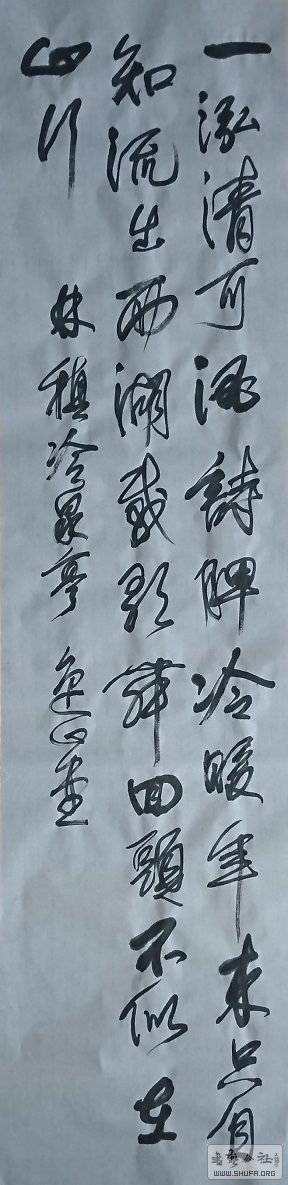 一泓清可沁詩脾冷暖年來只自
知流出西湖載歌舞回頭不似在
山行
林稹冷泉亭
書藝公社
WWW.SHUFA.ORG